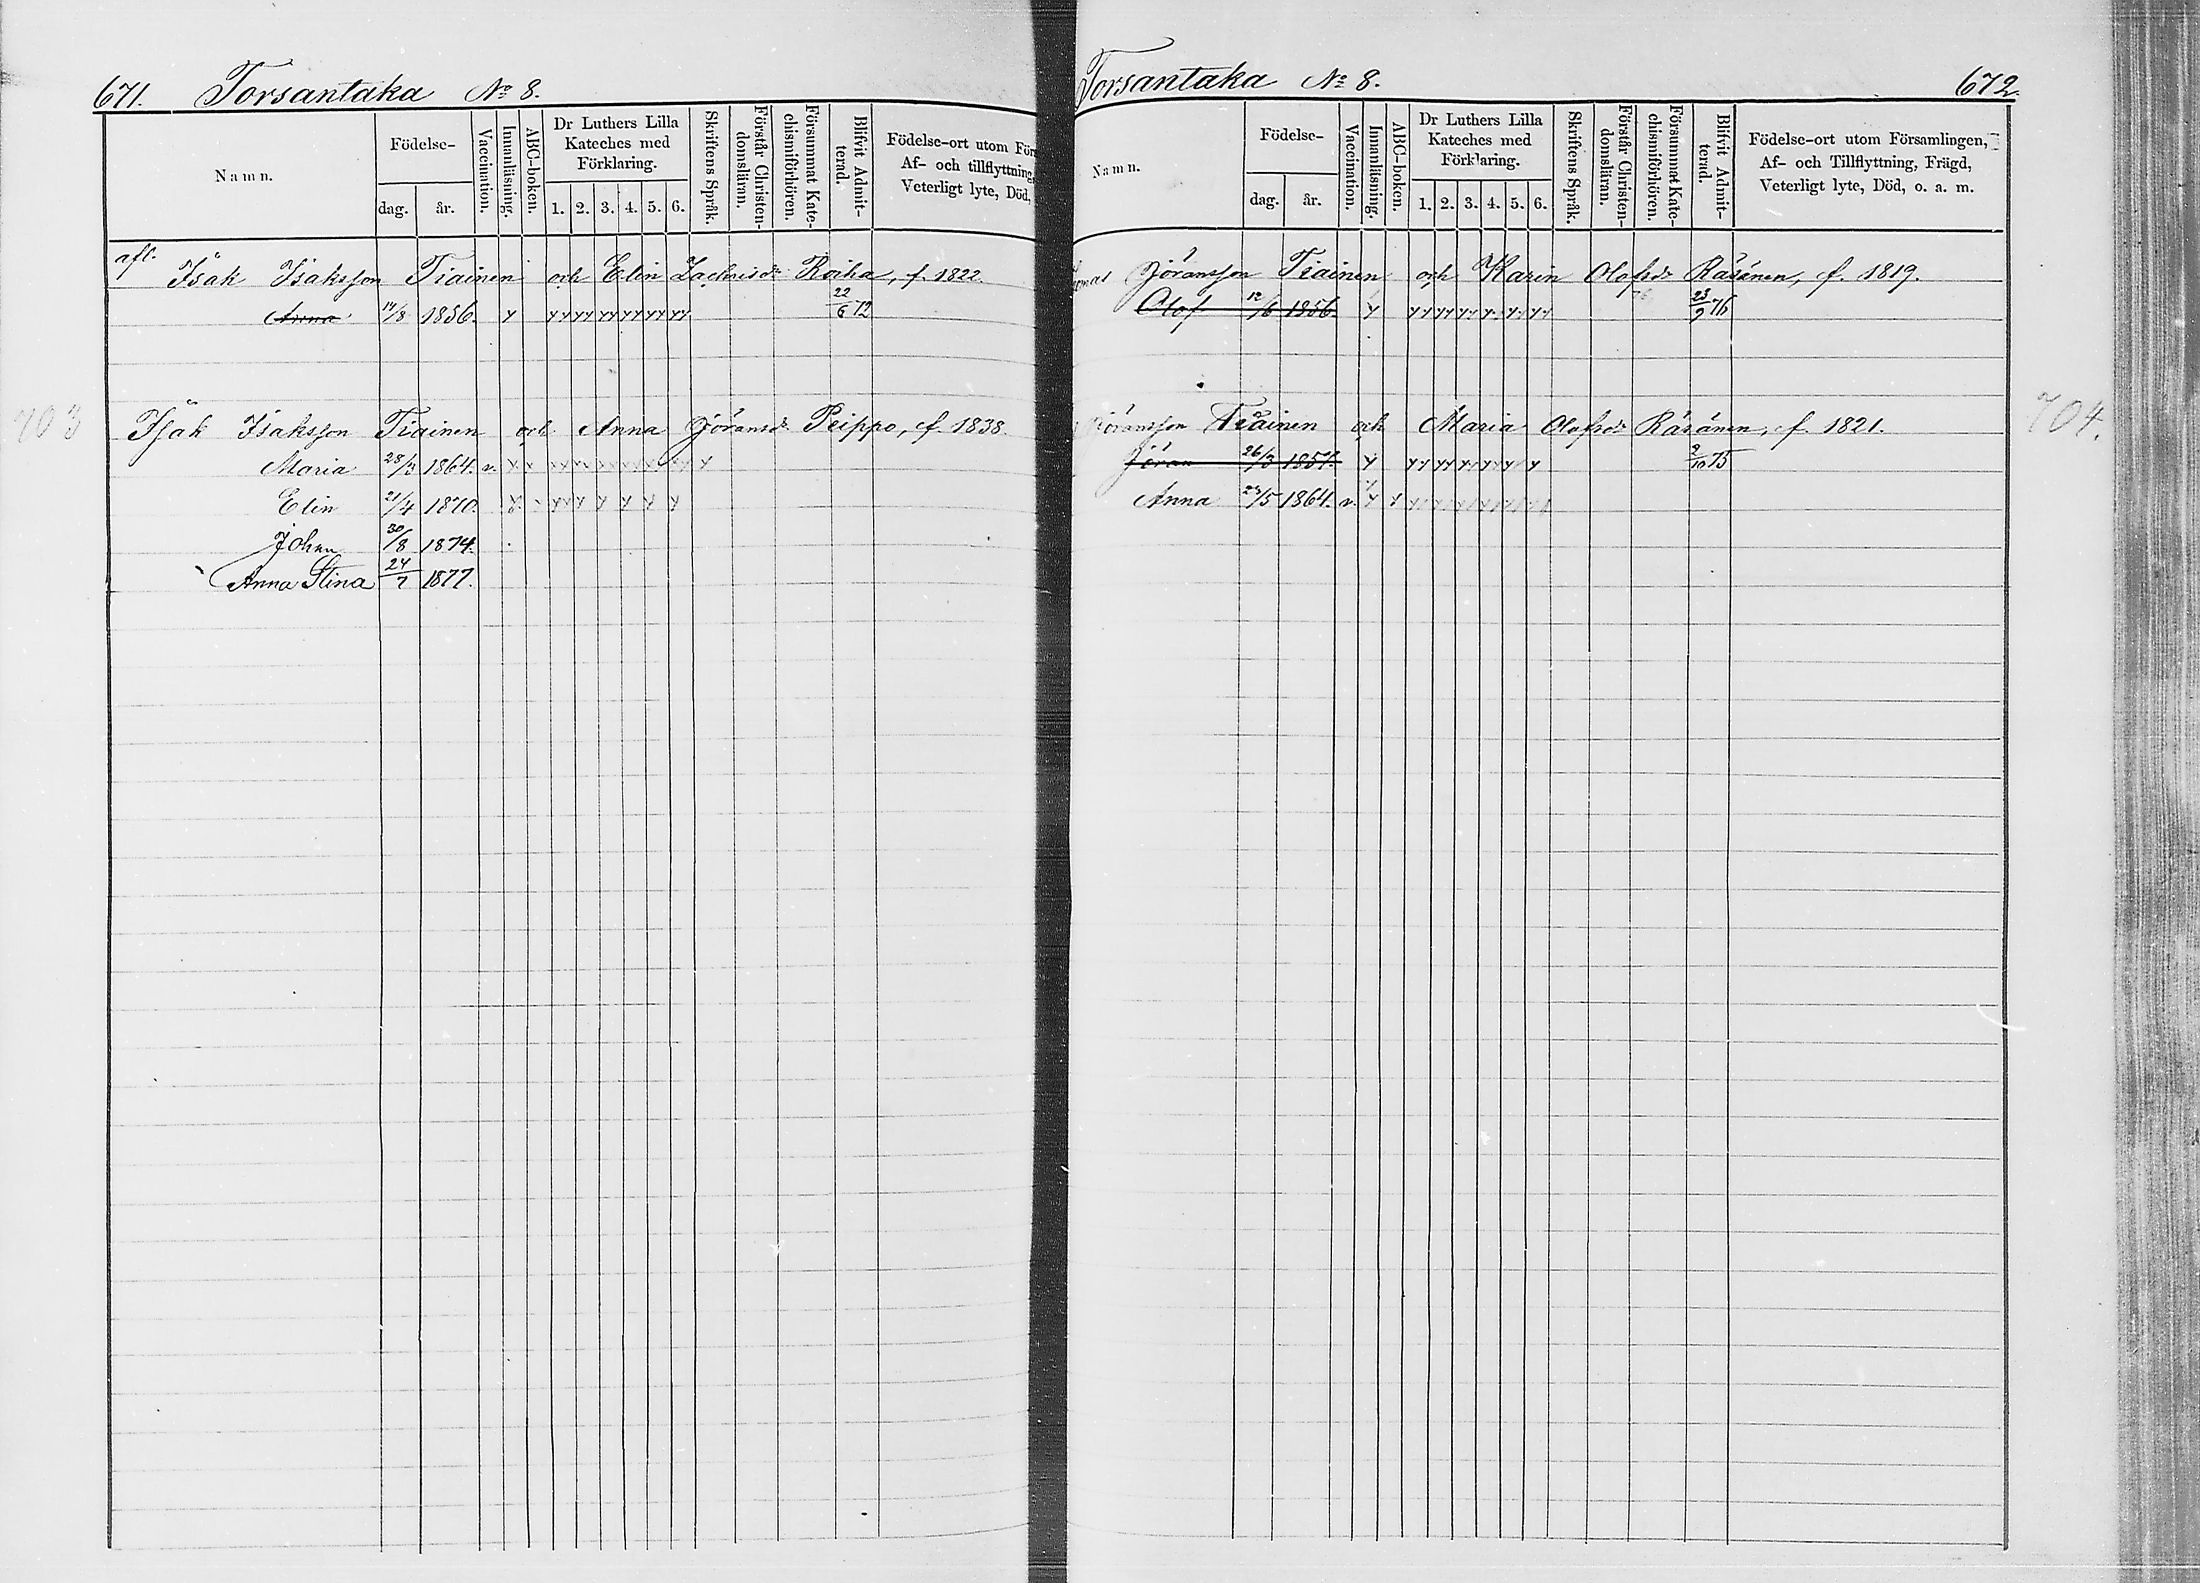 671. Torsantaka № 8.
Namn.
Födelse-
dag.
år.
Vaccination.
Innanläsning.
ABC-boken.
Dr Luthers Lilla
Kateches med
Förklaring.
1. 2. 3. 4. 5. 6.
Skriftens Språk.
Förstår Christen-
domsläran.
Försummat Kate-
chismiförhören.
Blifvit Admit-
terad.
Födelse-ort utom För
Af- och tillflyttning,
Veterligt lyte, Död,
afl.
Isak Isaksson Tiainen och Elin Zachrisdr Roiha, f. 1822.
Anna 14/8 1856. 22/6 72
703
Isak Isaksson Tiainen och Anna Jöransdr Peippo, f. 1838.
Maria 28/3 1864. v.
Elin 21/4 1870.
Johan 30/8 1874.
Anna Stina 24/7 1877.
Torsantaka № 8. 672.
Namn.
Födelse-
dag.
år.
Vaccination.
Innanläsning.
ABC-boken.
Dr Luthers Lilla
Kateches med
Förklaring.
1. 2. 3. 4. 5. 6.
Skriftens Språk.
Förstår Christen-
domsläran.
Försummat Kate-
chismiförhören.
Blifvit Admit-
terad.
Födelse-ort utom Församlingen,
Af- och Tillflyttning, Frägd,
Veterligt lyte, Död, o. a. m.
Jöransson Tiainen och Karin Olofsdr Räsänen, f. 1819.
Olof 12/6 1856. 23/9 76
704.
Jöransson Tiainen och Maria Olofsdr Räsänen, f. 1821.
Jöran 26/3 1857. 2/10 75
Anna 23/5 1864. v.